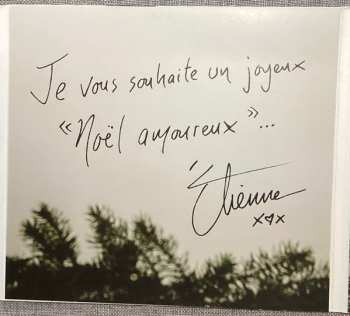 Je vous souhaite un joyeux
« Noël amoureux »...
Étienne
xxx